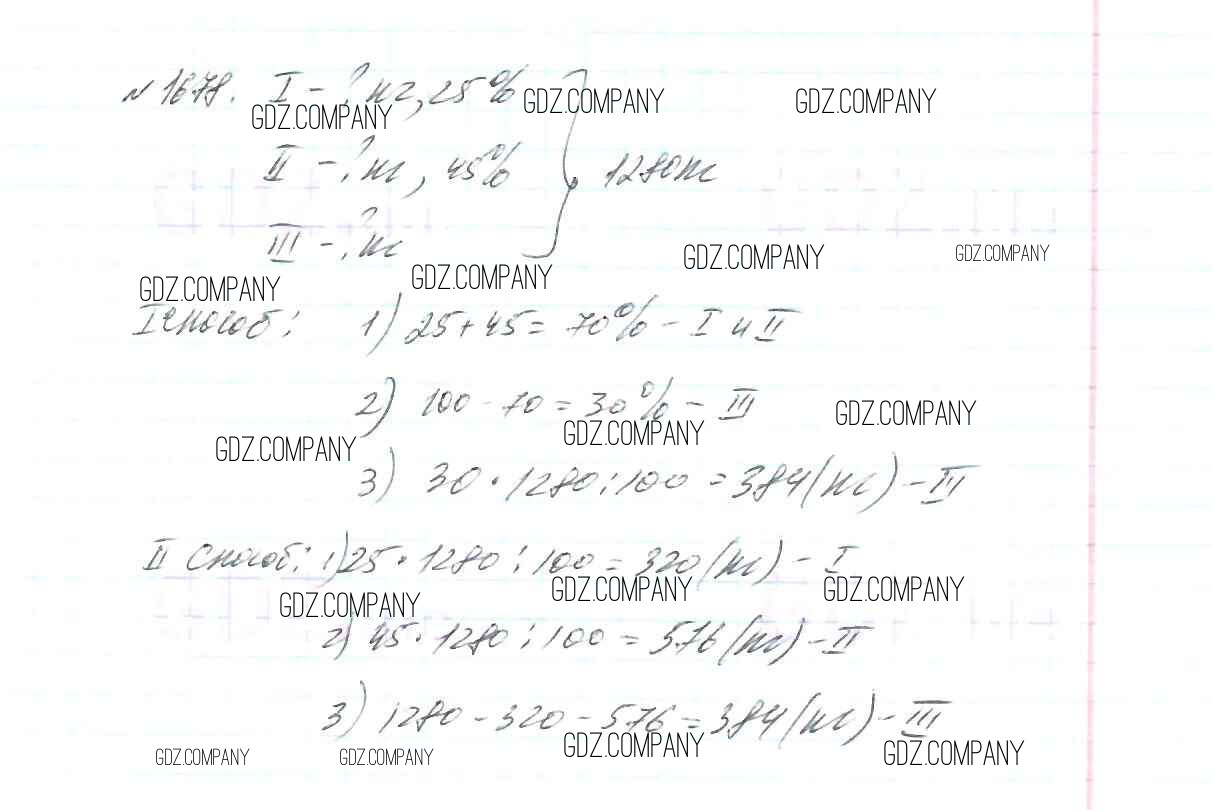 № 1678. I - ? кг, 25%
GDZ.COMPANY GDZ.COMPANY GDZ.COMPANY
II - ? кг, 45% } 1280 кг
III - ? кг
GDZ.COMPANY GDZ.COMPANY GDZ.COMPANY GDZ.COMPANY
I способ: 1) 25 + 45 = 70% - I и II
2) 100 - 70 = 30% - III
GDZ.COMPANY GDZ.COMPANY GDZ.COMPANY
3) 30 · 1280 : 100 = 384 (кг) - III
II способ: 1) 25 · 1280 : 100 = 320 (кг) - I
GDZ.COMPANY GDZ.COMPANY GDZ.COMPANY
2) 45 · 1280 : 100 = 576 (кг) - II
3) 1280 - 320 - 576 = 384 (кг) - III
GDZ.COMPANY GDZ.COMPANY GDZ.COMPANY GDZ.COMPANY